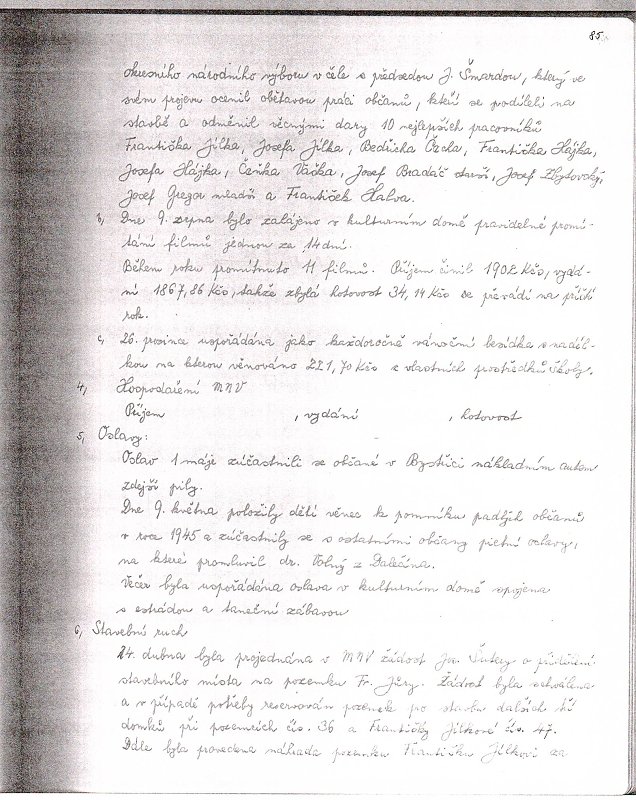 85
okresního národního výboru v čele s předsedou J. Šmardou, který ve
svém projevu ocenil obětavou práci občanů, kteří se podíleli na
stavbě a odměnil věcnými dary 10 nejlepších pracovníků
Františka Jílka, Josefa Jílka, Bedřicha Čecha, Františka Hájka,
Josefa Hájka, Čeňka Vaška, Josef Bradáč starší, Josef Zbytovský,
Josef Gregor mladší a František Halva.
b, Dne 9. srpna bylo zahájeno v kulturním domě pravidelné promí-
tání filmů jednou za 14 dní.
Během roku promítnuto 11 filmů. Příjem činil 1902 Kčs, vydá-
ní 1867,86 Kčs, takže zbylá hotovost 34,14 Kčs se převádí na příští
rok.
c, 26. prosince uspořádána jako každoročně vánoční besídka s nadíl-
kou na kterou věnováno 221,70 Kčs z vlastních prostředků školy.
4, Hospodaření MNV
Příjem , vydání , hotovost
5, Oslavy:
Oslav 1 máje zúčastnili se občané v Bystřici nákladním autem
zdejší pily.
Dne 9. května položily děti věnec k pomníku padlých občanů
v roce 1945 a zúčastnily se s ostatními občany pietní oslavy,
na které promluvil dr. Volný z Dalečína.
Večer byla uspořádána oslava v kulturním domě spojena
s estrádou a taneční zábavou
6, Stavební ruch
24. dubna byla projednána v MNV žádost Jar. Šutery o přidělení
stavebního místa na pozemku Fr. Jůzy. Žádost byla schválena
a v případě potřeby reservován pozemek po stavbu dalších tří
domků při pozemcích čís. 36 a Františky Jílkové čís. 47.
Dále byla provedena náhrada pozemku Františku Jílkovi za